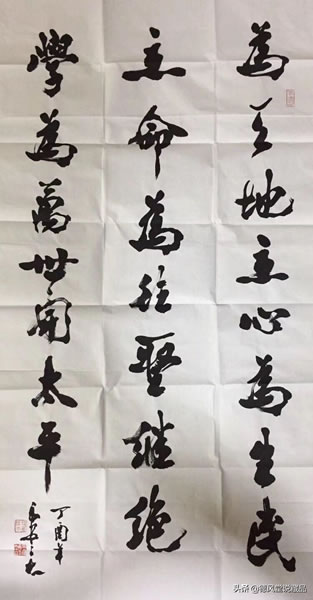 為天地立心為生民
立命為往聖繼絕
學為萬世開太平
丁酉年
头条 @德风堂说藏品